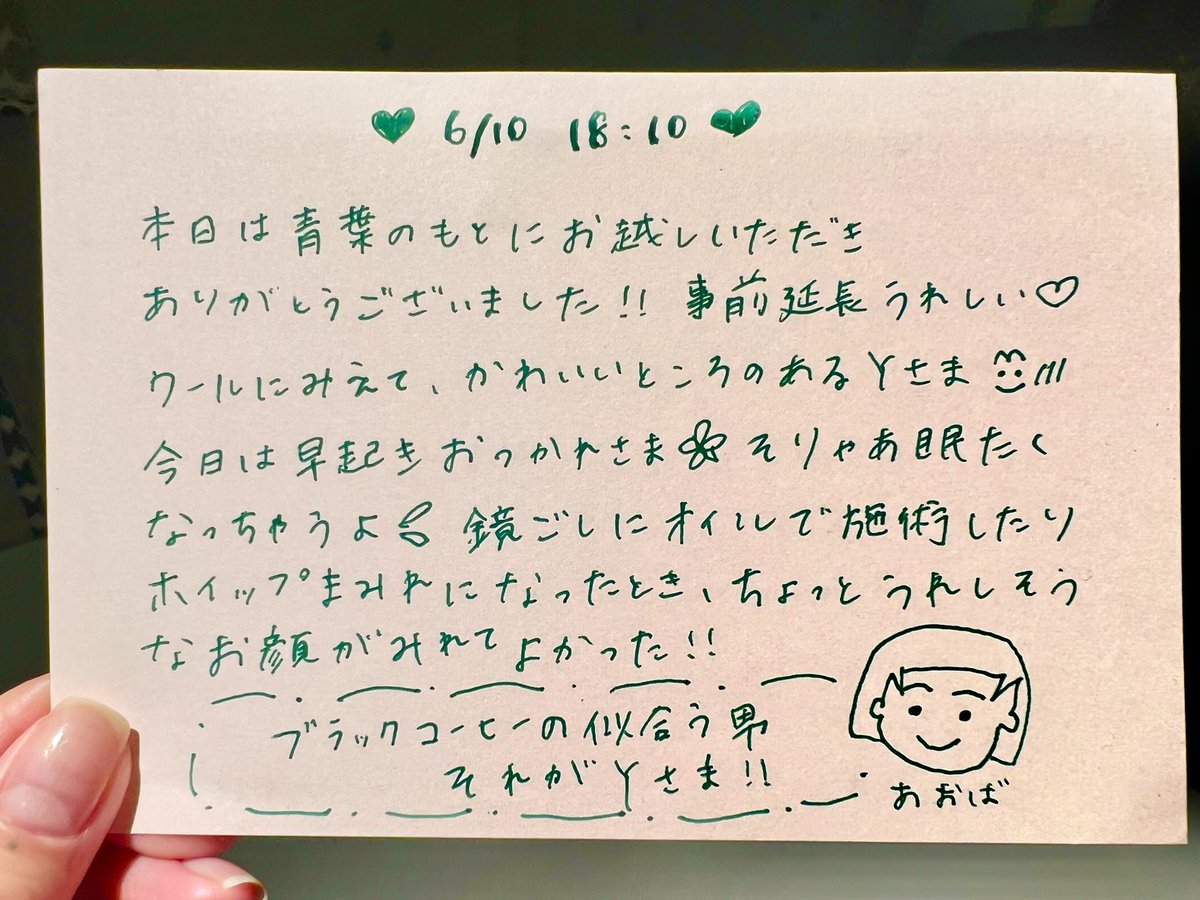 6/10 18:10
本日は青葉のもとにお越しいただき
ありがとうございました!! 事前延長うれしい♡
クールにみえて、かわいいところのあるYさま
今日は早起きおつかれさま そりゃあ眠たく
なっちゃうよ 鏡ごしにオイルで施術したり
ホイップまみれになったとき、ちょっとうれしそう
なお顔がみれてよかった!!
ブラックコーヒーの似合う男
それがYさま!!
あおば